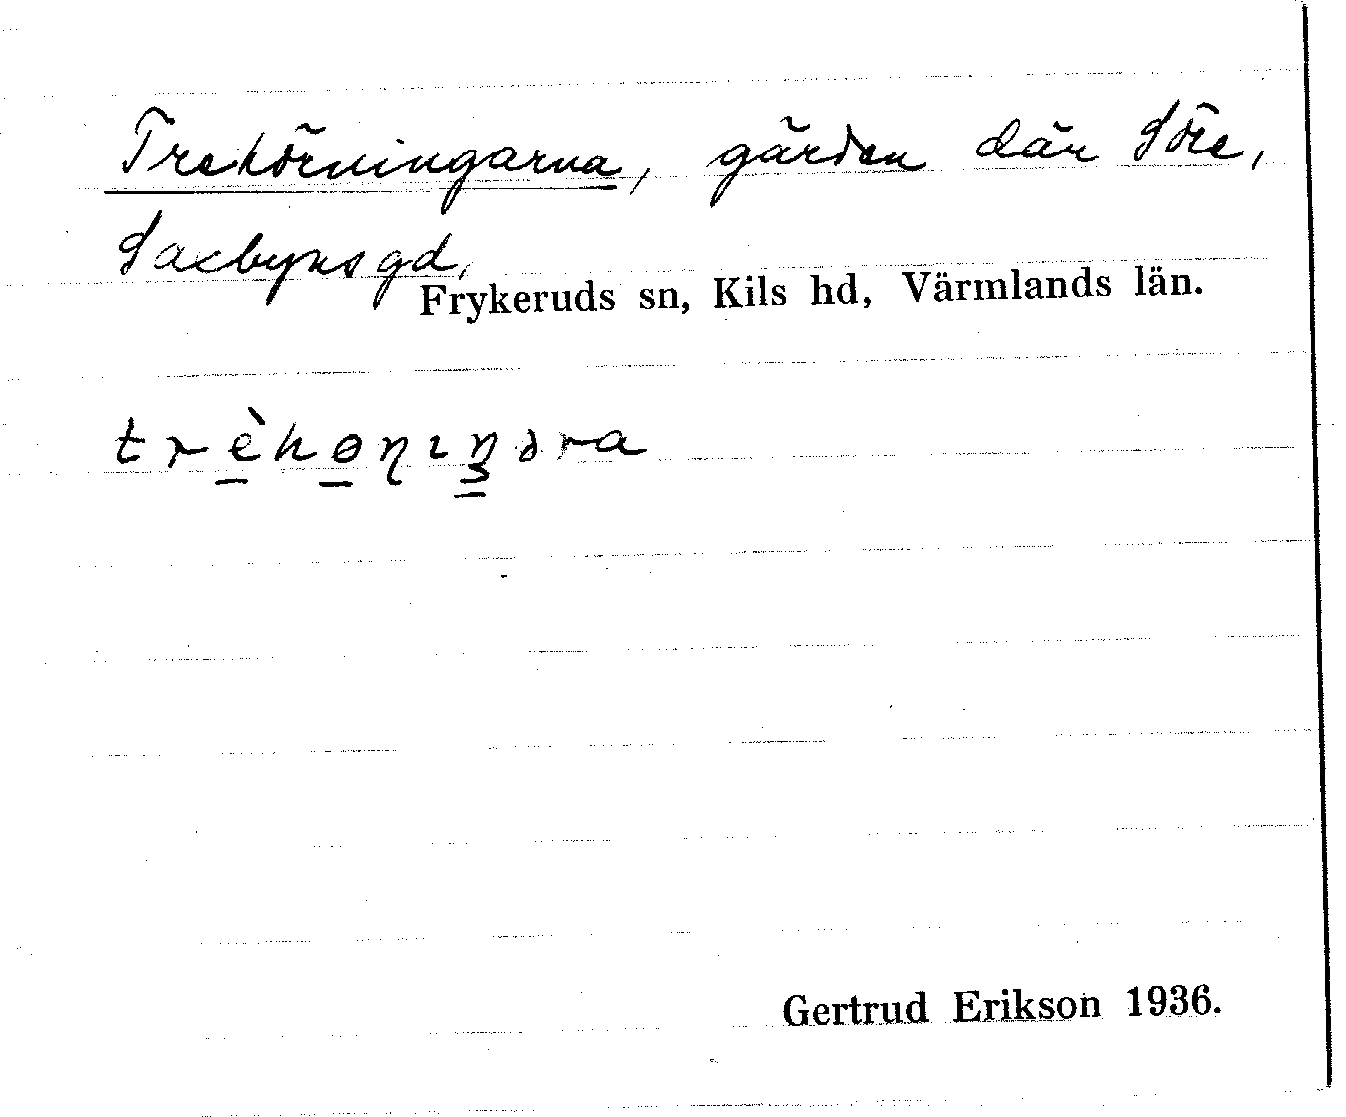 Trehörningarna, gärden där Söre,
Saxbyns gd,
Frykeruds sn, Kils hd, Värmlands län.
trèhɵɳɪŋəra
Gertrud Erikson 1936.